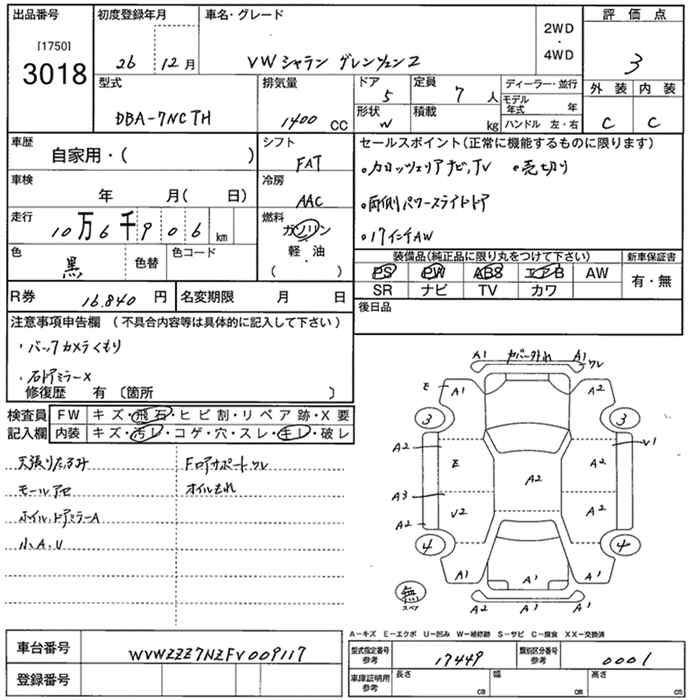 出品番号 初度登録年月 車名・グレード 2WD ・ 4WD 評価点
[1750] 3018 26 12月 VW シャラン グレンツェン2 3
型式 排気量 ドア 5 定員 7 人 ディーラー・並行 外装 内装
DBA-7NCTH 1400 CC 形状 W 積載 kg モデル年式 年 ハンドル 左・右 C C
車歴 シフト セールスポイント(正常に機能するものに限ります)
自家用・( ) FAT ・カロッツェリアナビ,TV ・売切り
車検 冷房
年 月( 日) AAC ・両側パワースライドドア
走行 燃料
10万6千906km ガソリン ・17インチAW
色 色替 色コード 軽・油 装備品(純正品に限り丸をつけて下さい) 新車保証書
黒 ( ) PS PW ABS エアB AW 有・無
R券 16.840 円 名変期限 月 日 SR ナビ TV カワ
注意事項申告欄 (不具合内容等は具体的に記入して下さい) 後日品
・バックカメラくもり
・右ドアミラーX
修復歴 有 〔箇所 〕
検査員 FW キズ・飛石・ヒビ割・リペア跡・X要
記入欄 内装 キズ・汚レ・コゲ・穴・スレ・キレ・破レ
天張りたるみ Fロアサポートワレ
モールアセ オイルもれ
ホイル,ドアミラーA
小A,U
A1 カバー外れ A1 ワレ
E A1 A1
3 3
A2 A2 V1
E
A2
A3
A2 V2 A2
4 4
A1 A1 A1
無 スペア A2 A1 A1
A-キズ E-エクボ U-凹み W-補修跡 S-サビ C-腐食 XX-交換済
車台番号 WVWZZZ7NZFV009117
登録番号
型式指定番号 参考 17449 類別区分番号 参考 0001
車庫証明用 参考 長さ cm 幅 cm 高さ cm